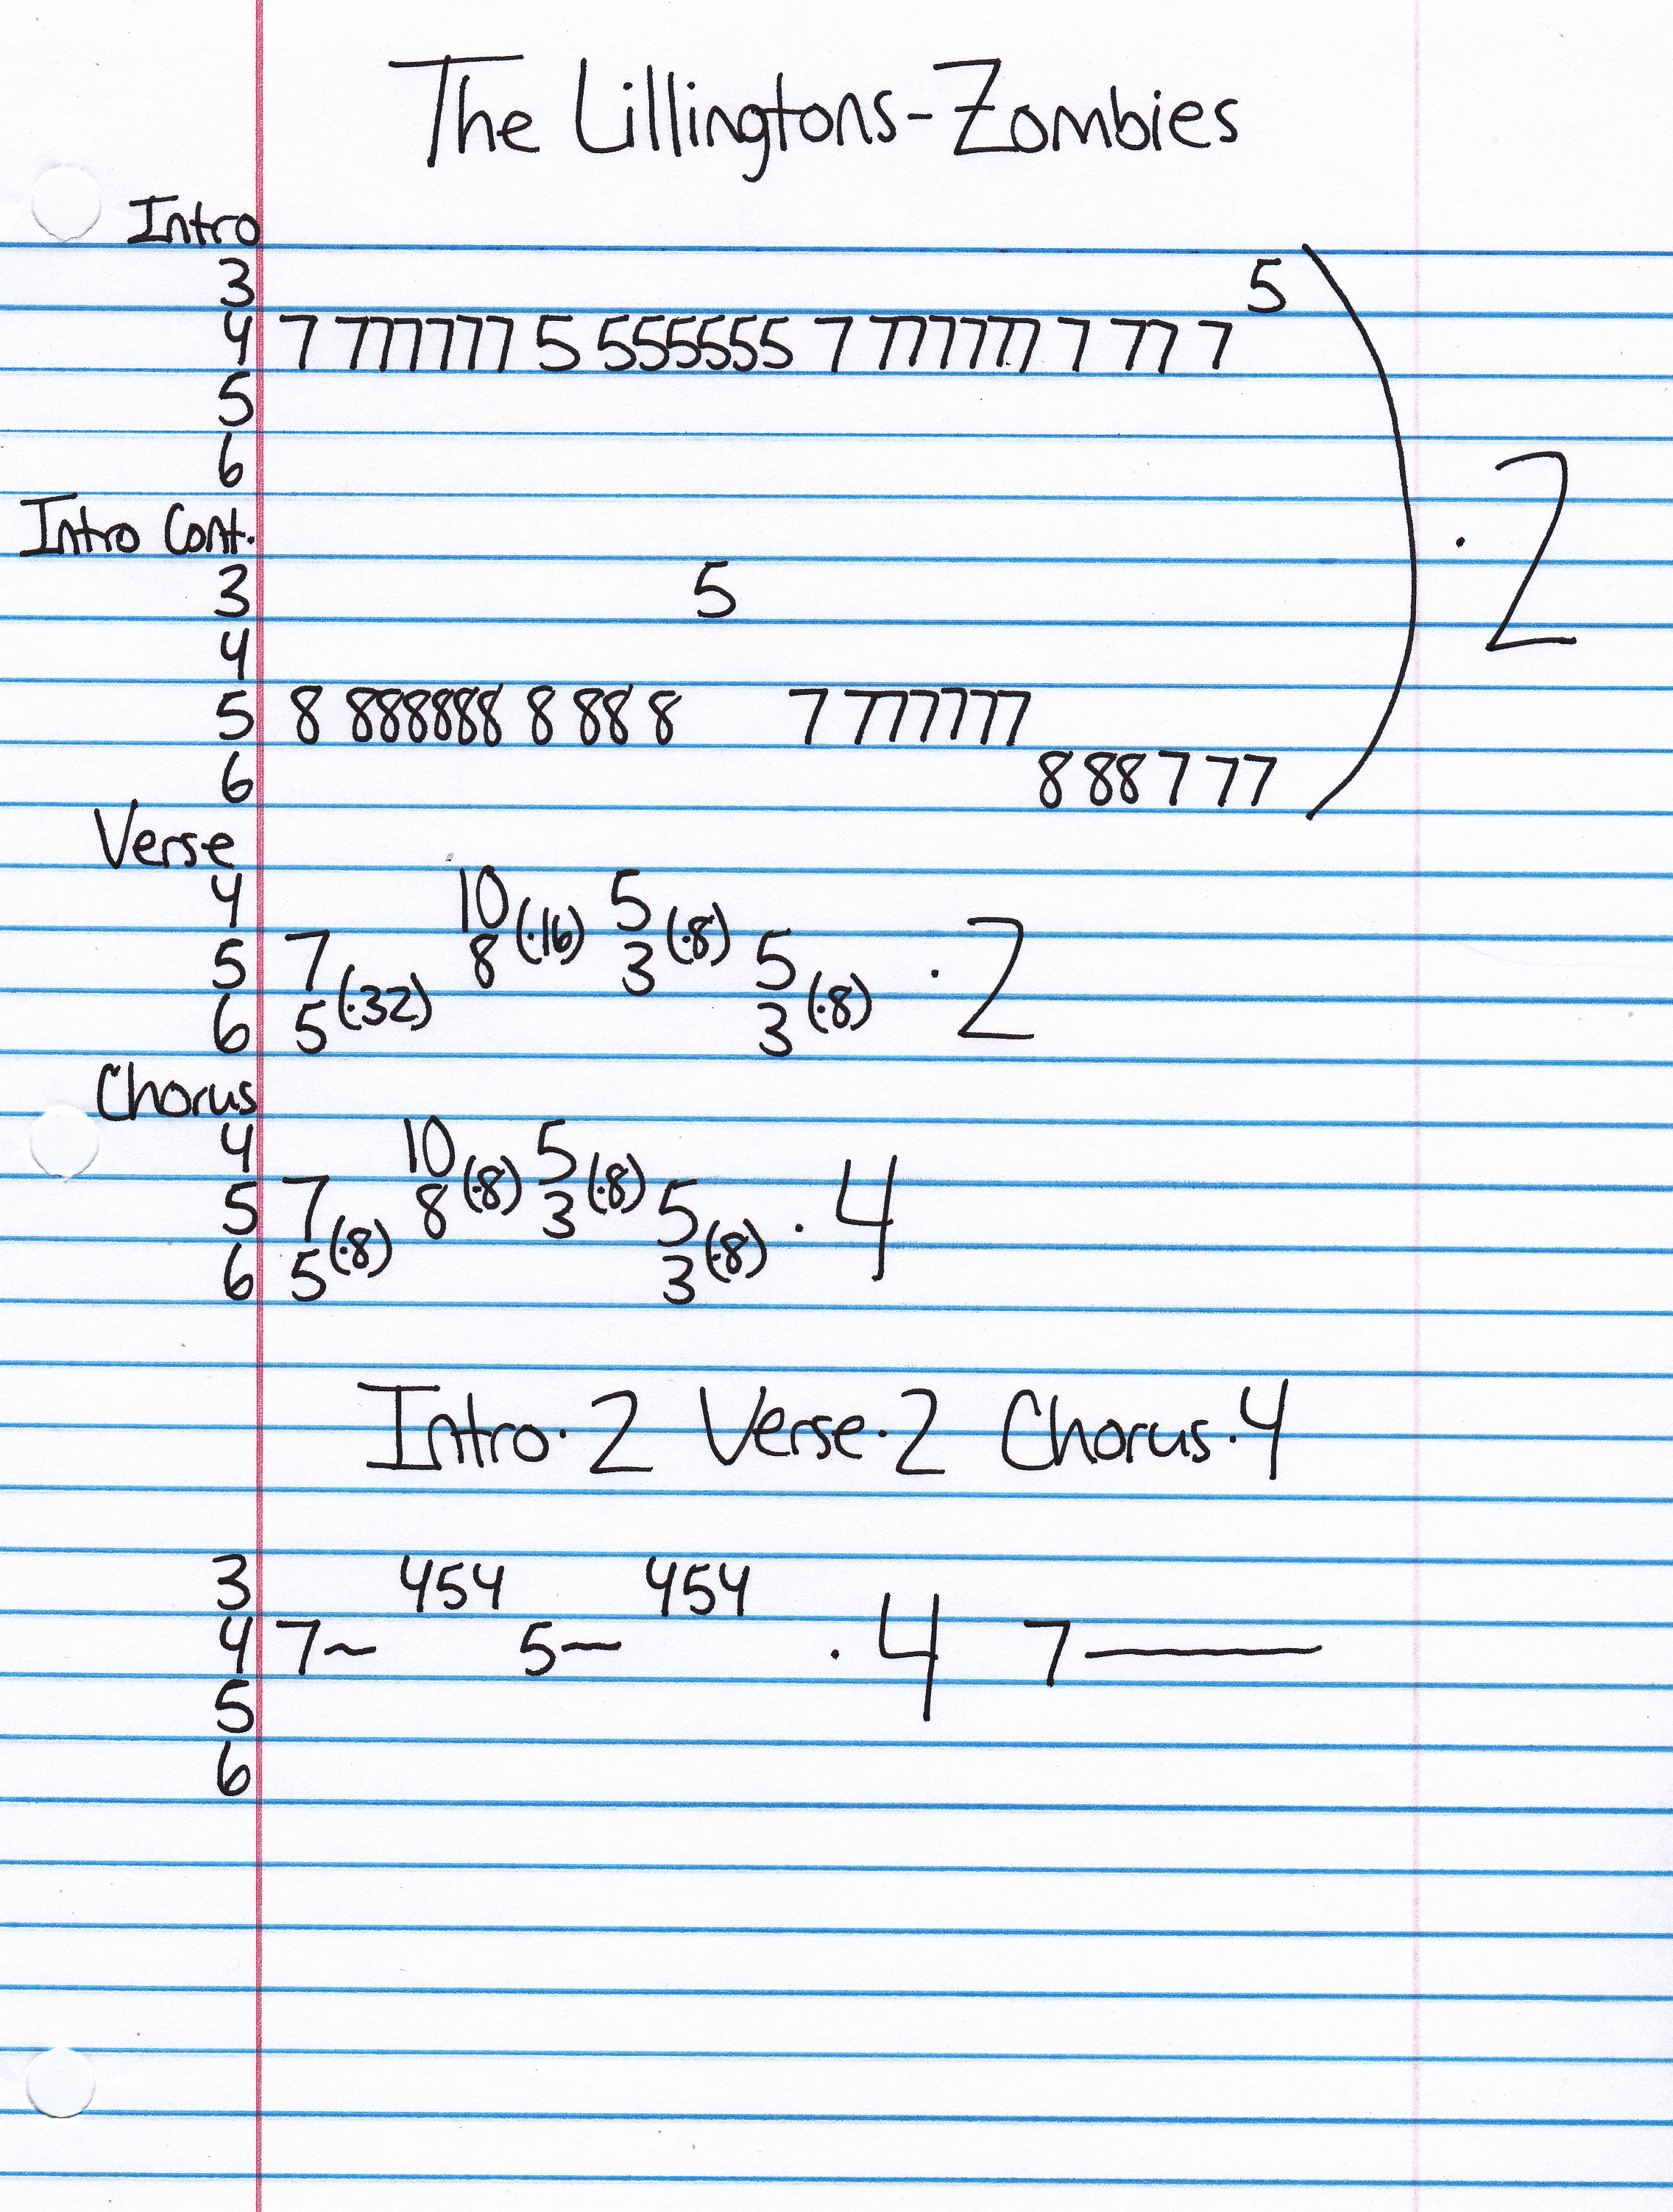 The Lillingtons-Zombies
Intro
3 5
4 7 777777 5 555555 7 777777 7 777 7
5
6
Intro Cont.
3 5
4
5 8 888888 8 888 8 7 777777
6 8 88 7 77
·2
Verse
4 10 5
5 7 8 (·16) 3 (·8) 5
6 5 (·32) 3 (·8) ·2
Chorus
4 10 5
5 7 8 (·8) 3 (·8) 5
6 5 (·8) 3 (·8) ·4
Intro·2 Verse·2 Chorus·4
3 454 454
4 7~ 5— ·4 7—
5
6